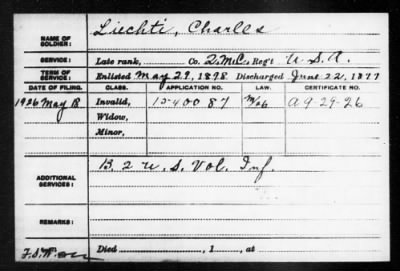 NAME OF SOLDIER: Liechti, Charles
SERVICE: Late rank, Co. Q.M.C. Reg't U.S.A.
TERM OF SERVICE: Enlisted May 29, 1898 Discharged June 22, 18
DATE OF FILING. CLASS. APPLICATION NO. LAW. CERTIFICATE NO.
1926 May 18 Invalid, 1540087 A 9-29-26
Widow,
Minor,
ADDITIONAL SERVICES: B. 2 U.S. Vol. Inf.
REMARKS:
Died , 1 , at